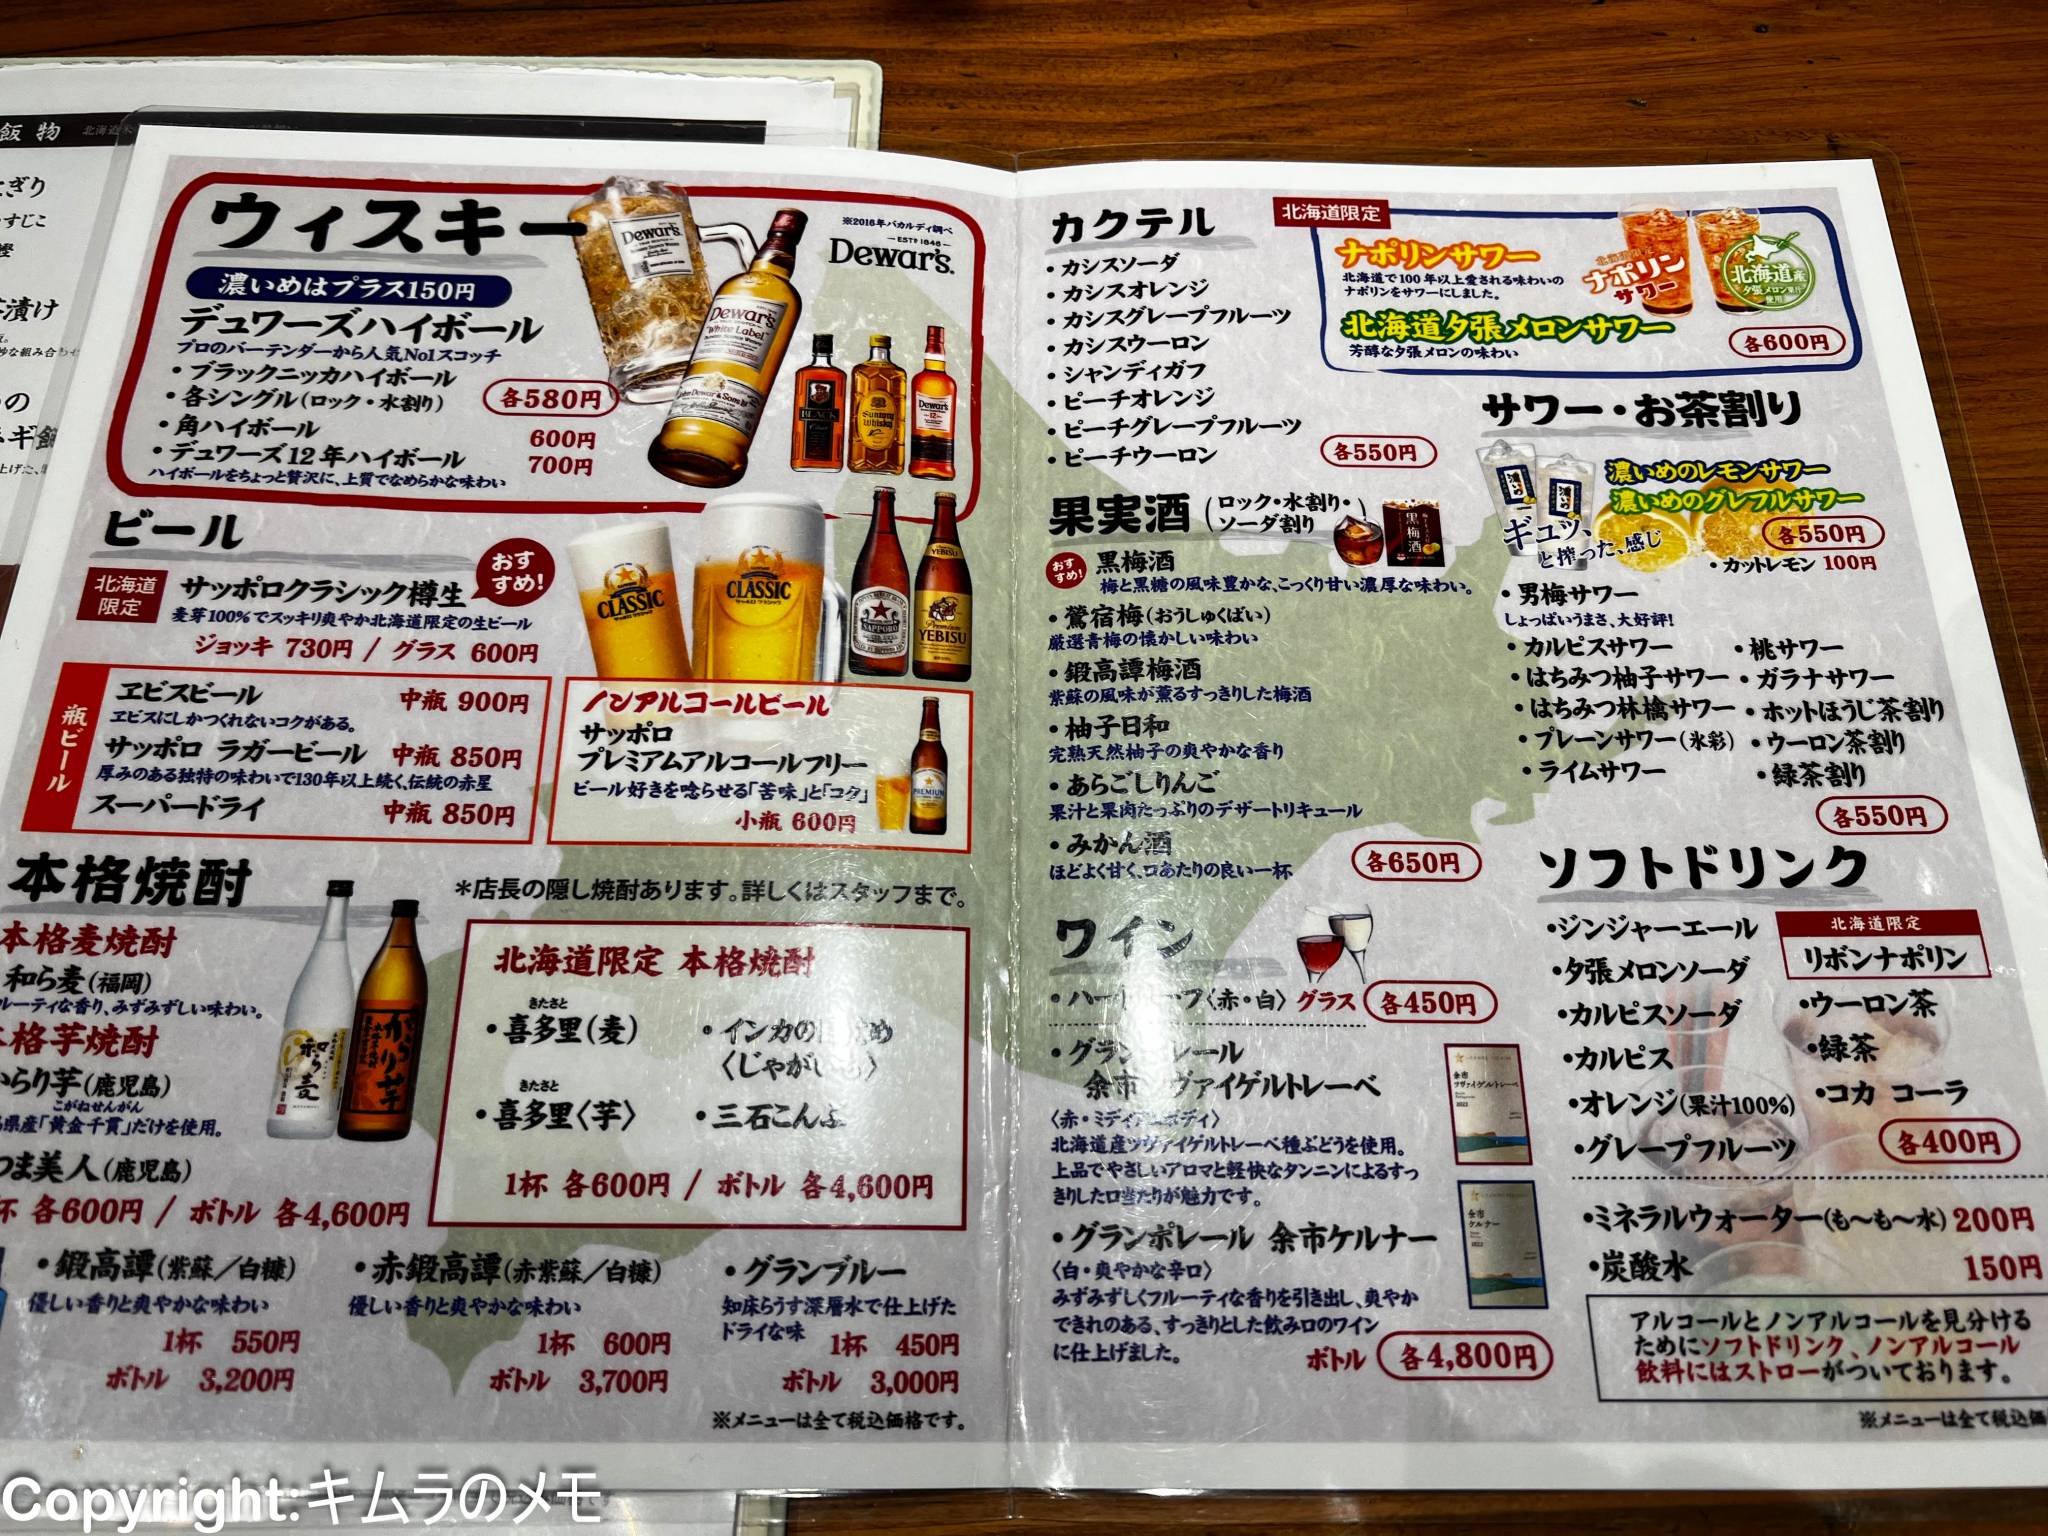 飯物
ぎり
すじこ
漬け
ウィスキー
濃いめはプラス150円
デュワーズハイボール
プロのバーテンダーから人気No1スコッチ
・ブラックニッカハイボール
・各シングル(ロック・水割り)
各580円
・角ハイボール 600円
・デュワーズ12年ハイボール 700円
ハイボールをちょっと贅沢に、上質でなめらかな味わい
※2016年バカルディ調べ
ESTD 1846
Dewar's.
Dewar's
Dewar's
"White Label"
BLACK
Suntory
Whisky
Dewar's
12
ビール
おすすめ!
北海道限定
サッポロクラシック樽生
麦芽100%でスッキリ爽やか北海道限定の生ビール
ジョッキ 730円 / グラス 600円
CLASSIC
CLASSIC
SAPPORO
YEBISU
Premium
YEBISU
瓶ビール
ヱビスビール 中瓶 900円
ヱビスにしかつくれないコクがある。
サッポロ ラガービール 中瓶 850円
厚みのある独特の味わいで130年以上続く、伝統の赤星
スーパードライ 中瓶 850円
ノンアルコールビール
サッポロ
プレミアムアルコールフリー
ビール好きを唸らせる「苦味」と「コク」
小瓶 600円
PREMIUM
本格焼酎
*店長の隠し焼酎あります。詳しくはスタッフまで。
本格麦焼酎
和ら麦(福岡)
ルーティな香り、みずみずしい味わい。
格芋焼酎
らり芋(鹿児島)
こがねせんがん
県産「黄金千貫」だけを使用。
つま美人(鹿児島)
杯 各600円 / ボトル 各4,600円
和ら麦
からり芋
北海道限定 本格焼酎
きたさと
・喜多里(麦)
・インカの
めめ
〈じゃが
きたさと
・喜多里〈芋〉
・三石こんぶ
1杯 各600円 / ボトル 各4,600円
・鍛高譚(紫蘇/白糠)
優しい香りと爽やかな味わい
1杯 550円
ボトル 3,200円
・赤鍛高譚(赤紫蘇/白糠)
優しい香りと爽やかな味わい
1杯 600円
ボトル 3,700円
・グランブルー
知床らうす深層水で仕上げた
ドライな味
1杯 450円
ボトル 3,000円
※メニューは全て税込価格です。
カクテル
・カシスソーダ
・カシスオレンジ
・カシスグレープフルーツ
・カシスウーロン
・シャンディガフ
・ピーチオレンジ
・ピーチグレープフルーツ
・ピーチウーロン
各550円
北海道限定
ナポリンサワー
北海道で100年以上愛される味わいの
ナポリンをサワーにしました。
北海道夕張メロンサワー
芳醇な夕張メロンの味わい
各600円
ナポリン
サワー
北海道産
夕張メロン果汁
使用
果実酒(ロック・水割り・ソーダ割り)
おすすめ!
黒梅酒
梅と黒糖の風味豊かな、こっくり甘い濃厚な味わい。
・鶯宿梅(おうしゅくばい)
厳選青梅の懐かしい味わい
・鍛高譚梅酒
紫蘇の風味が薫るすっきりした梅酒
・柚子日和
完熟天然柚子の爽やかな香り
・あらごしりんご
果汁と果肉たっぷりのデザートリキュール
・みかん酒
ほどよく甘く、口あたりの良い一杯
各650円
黒梅酒
サワー・お茶割り
濃いめのレモンサワー
濃いめのグレフルサワー
ギュッ、
と搾った、感じ
濃いめ
濃いめ
各550円
・カットレモン 100円
・男梅サワー
しょっぱいうまさ、大好評!
・カルピスサワー
・はちみつ柚子サワー
・はちみつ林檎サワー
・プレーンサワー(氷彩)
・ライムサワー
・桃サワー
・ガラナサワー
・ホットほうじ茶割り
・ウーロン茶割り
・緑茶割り
各550円
ワイン
〈赤・白〉 グラス 各450円
・グランポレール
余市ツヴァイゲルトレーベ
〈赤・ミディアムボディ〉
北海道産ツヴァイゲルトレーベ種ぶどうを使用。
上品でやさしいアロマと軽快なタンニンによるすっ
きりした口当たりが魅力です。
・グランポレール 余市ケルナー
〈白・爽やかな辛口〉
みずみずしくフルーティな香りを引き出し、爽やか
できれのある、すっきりとした飲み口のワイン
に仕上げました。
ボトル 各4,800円
余市
ツヴァイゲルトレーベ
2022
余市
ケルナー
2022
ソフトドリンク
・ジンジャーエール
・夕張メロンソーダ
・カルピスソーダ
・カルピス
・オレンジ(果汁100%)
・グレープフルーツ
北海道限定
リボンナポリン
・ウーロン茶
・緑茶
・コカ コーラ
各400円
・ミネラルウォーター(も〜も〜水) 200円
・炭酸水 150円
アルコールとノンアルコールを見分ける
ためにソフトドリンク、ノンアルコール
飲料にはストローがついております。
※メニューは全て税込価
Copyright:キムラのメモ